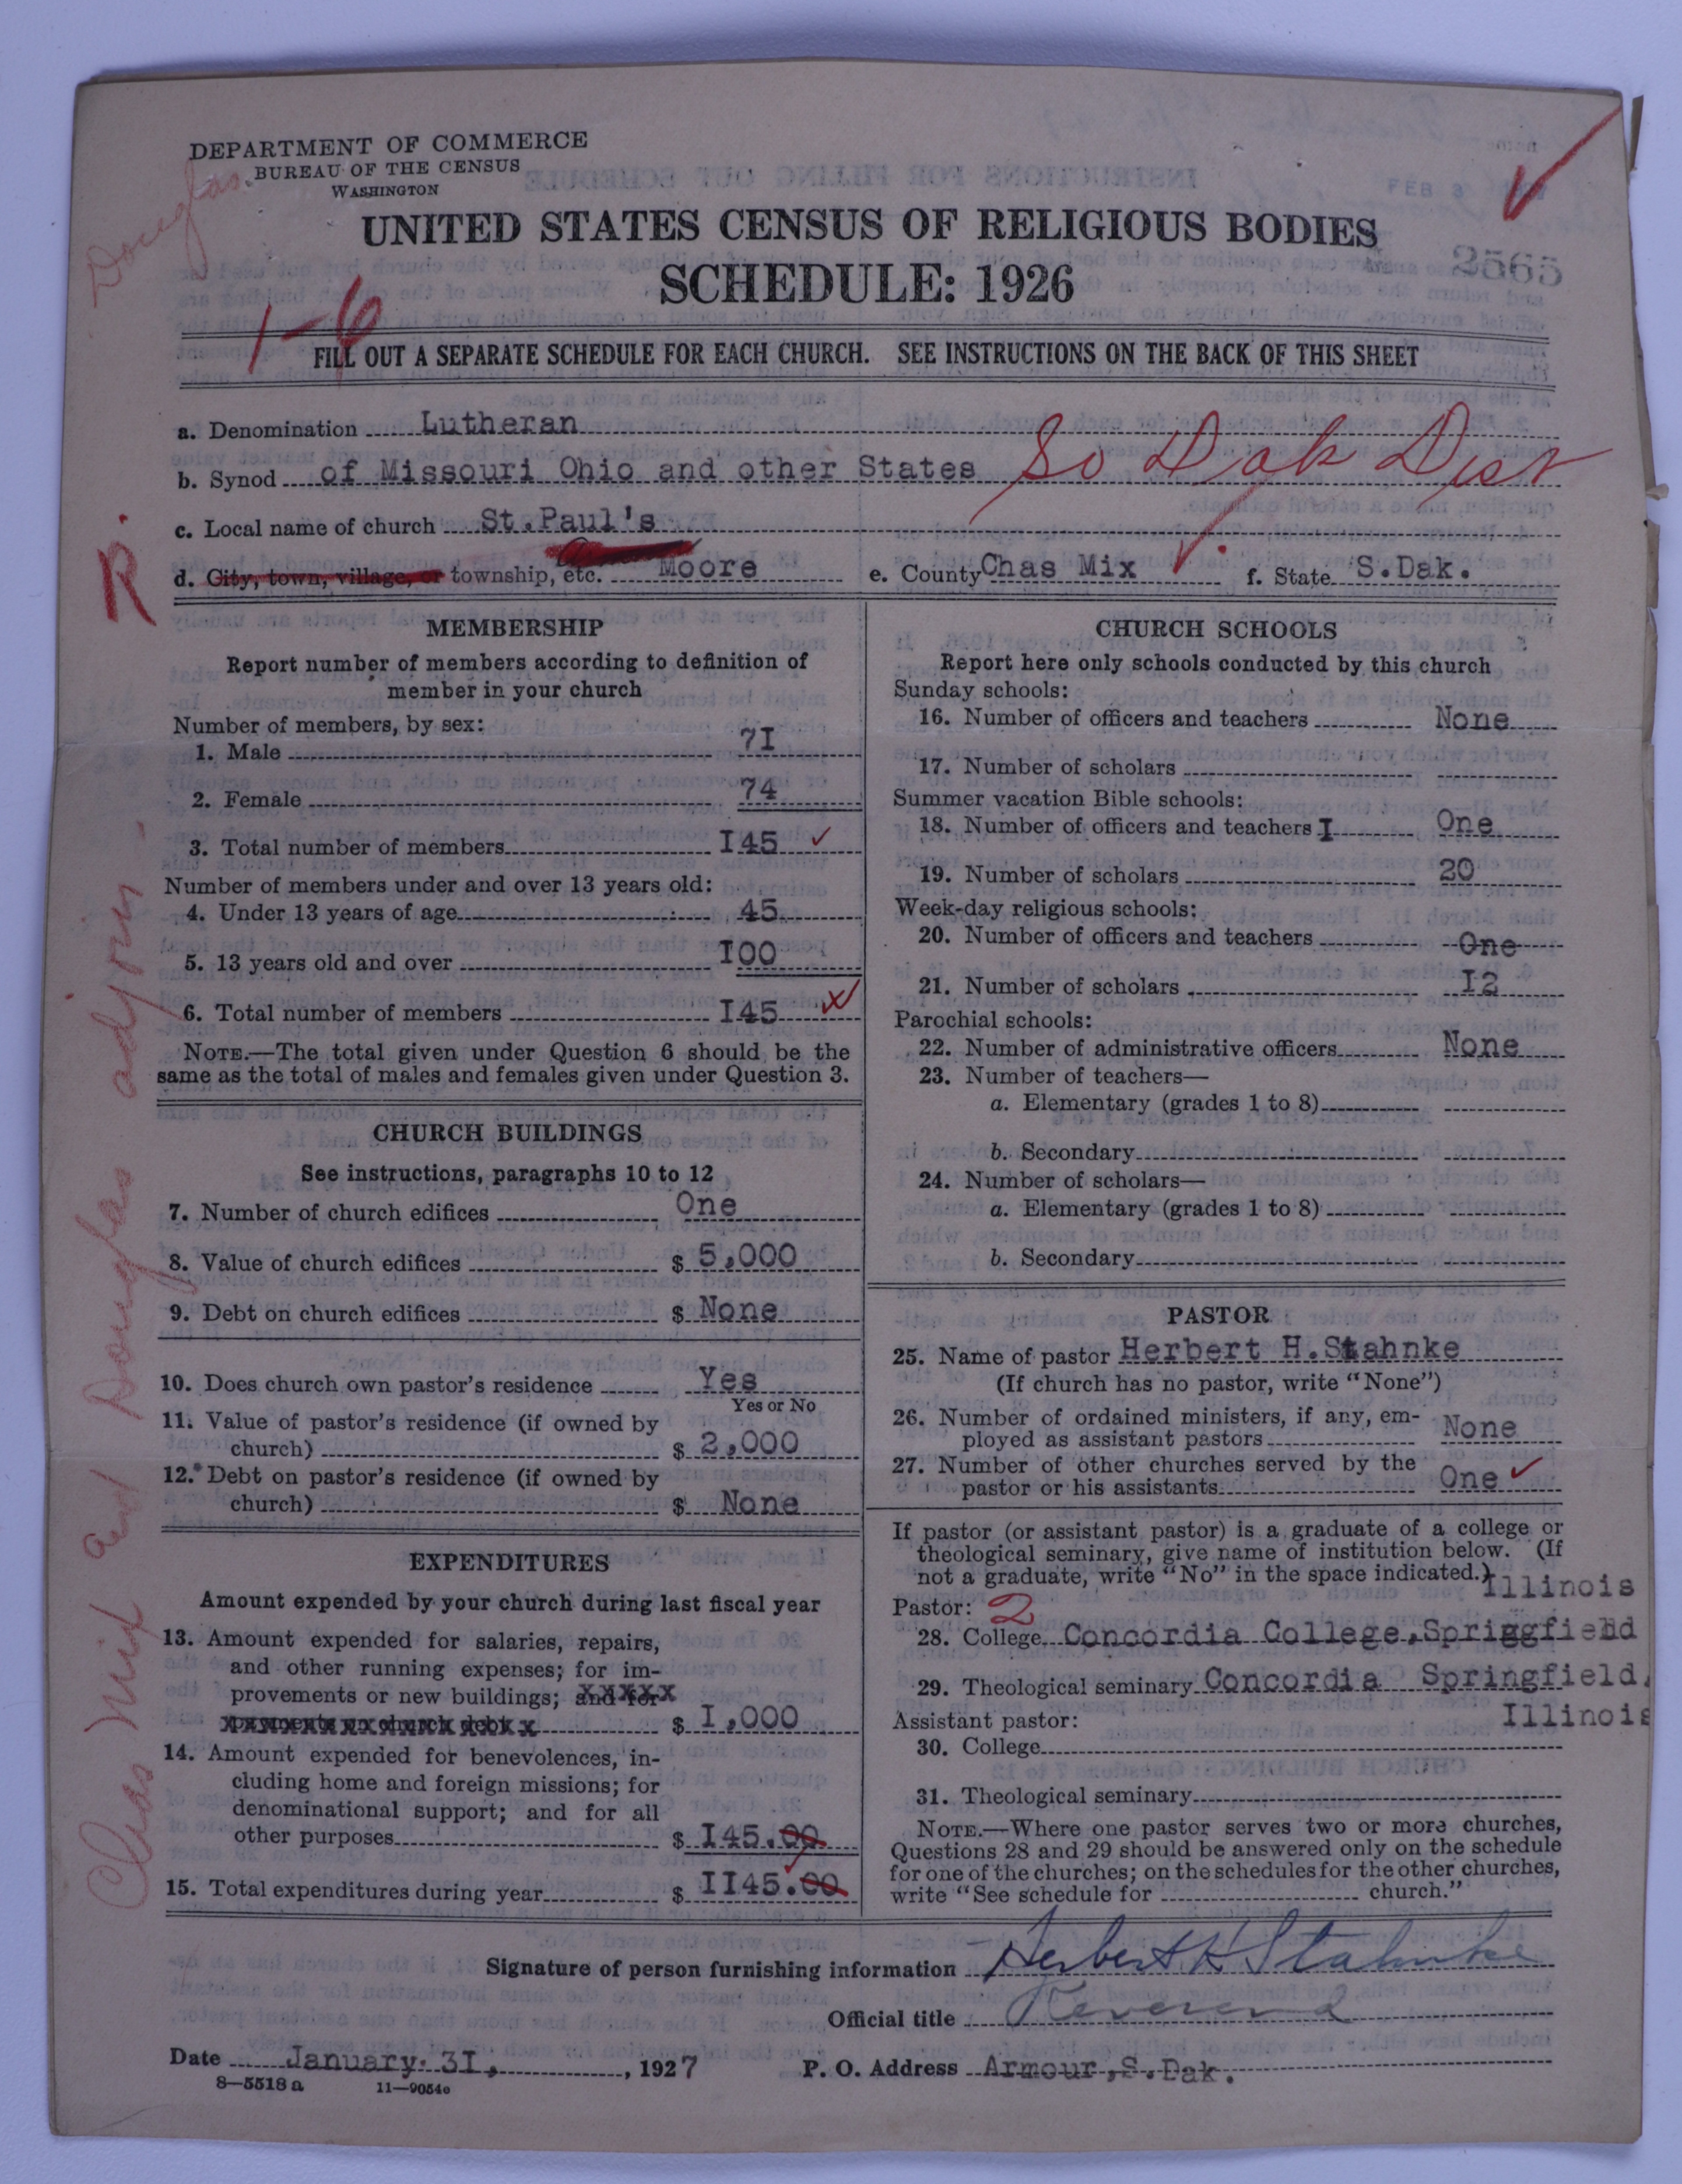 DEPARTMENT OF COMMERCE
BUREAU OF THE CENSUS
WASHINGTON
Douglas.
FEB 3
UNITED STATES CENSUS OF RELIGIOUS BODIES
2565
SCHEDULE: 1926
1-6
FILL OUT A SEPARATE SCHEDULE FOR EACH CHURCH. SEE INSTRUCTIONS ON THE BACK OF THIS SHEET
a. Denomination Lutheran
b. Synod of Missouri Ohio and other States So Dak Dist
c. Local name of church St.Paul's
R.
d. City, town, village, or township, etc. Moore e. County Chas Mix f. State S.Dak.
MEMBERSHIP
Report number of members according to definition of
member in your church
Number of members, by sex:
1. Male 7I
2. Female 74
3. Total number of members I45 ✓
Number of members under and over 13 years old:
4. Under 13 years of age 45
5. 13 years old and over I00
6. Total number of members I45
NOTE.—The total given under Question 6 should be the
same as the total of males and females given under Question 3.
CHURCH BUILDINGS
See instructions, paragraphs 10 to 12
7. Number of church edifices One
8. Value of church edifices $ 5,000
9. Debt on church edifices $ None
10. Does church own pastor's residence Yes
Yes or No
11. Value of pastor's residence (if owned by
church) $ 2,000
12. Debt on pastor's residence (if owned by
church) $ None
EXPENDITURES
Amount expended by your church during last fiscal year
13. Amount expended for salaries, repairs,
and other running expenses; for im-
provements or new buildings; and for
$ I,000
14. Amount expended for benevolences, in-
cluding home and foreign missions; for
denominational support; and for all
other purposes $ I45.00
15. Total expenditures during year $ II45.00
CHURCH SCHOOLS
Report here only schools conducted by this church
Sunday schools:
16. Number of officers and teachers None
17. Number of scholars
Summer vacation Bible schools:
18. Number of officers and teachers I One
19. Number of scholars 20
Week-day religious schools:
20. Number of officers and teachers One
21. Number of scholars I2
Parochial schools:
22. Number of administrative officers None
23. Number of teachers—
a. Elementary (grades 1 to 8)
b. Secondary
24. Number of scholars—
a. Elementary (grades 1 to 8)
b. Secondary
PASTOR
25. Name of pastor Herbert H.Stahnke
(If church has no pastor, write "None")
26. Number of ordained ministers, if any, em-
ployed as assistant pastors None
27. Number of other churches served by the
pastor or his assistants One ✓
If pastor (or assistant pastor) is a graduate of a college or
theological seminary, give name of institution below. (If
not a graduate, write "No" in the space indicated.)
Illinois
Pastor: 2
28. College Concordia College,Springfield
29. Theological seminary Concordia Springfield,
Assistant pastor: Illinois
30. College
31. Theological seminary
NOTE.—Where one pastor serves two or more churches,
Questions 28 and 29 should be answered only on the schedule
for one of the churches; on the schedules for the other churches,
write "See schedule for church."
Chas Mix and Douglas adjoin-
Signature of person furnishing information Herbert H Stahnke
Official title Reverend
Date January 3I, , 1927 P. O. Address Armour,S.Dak.
8—5518 a 11—9054e